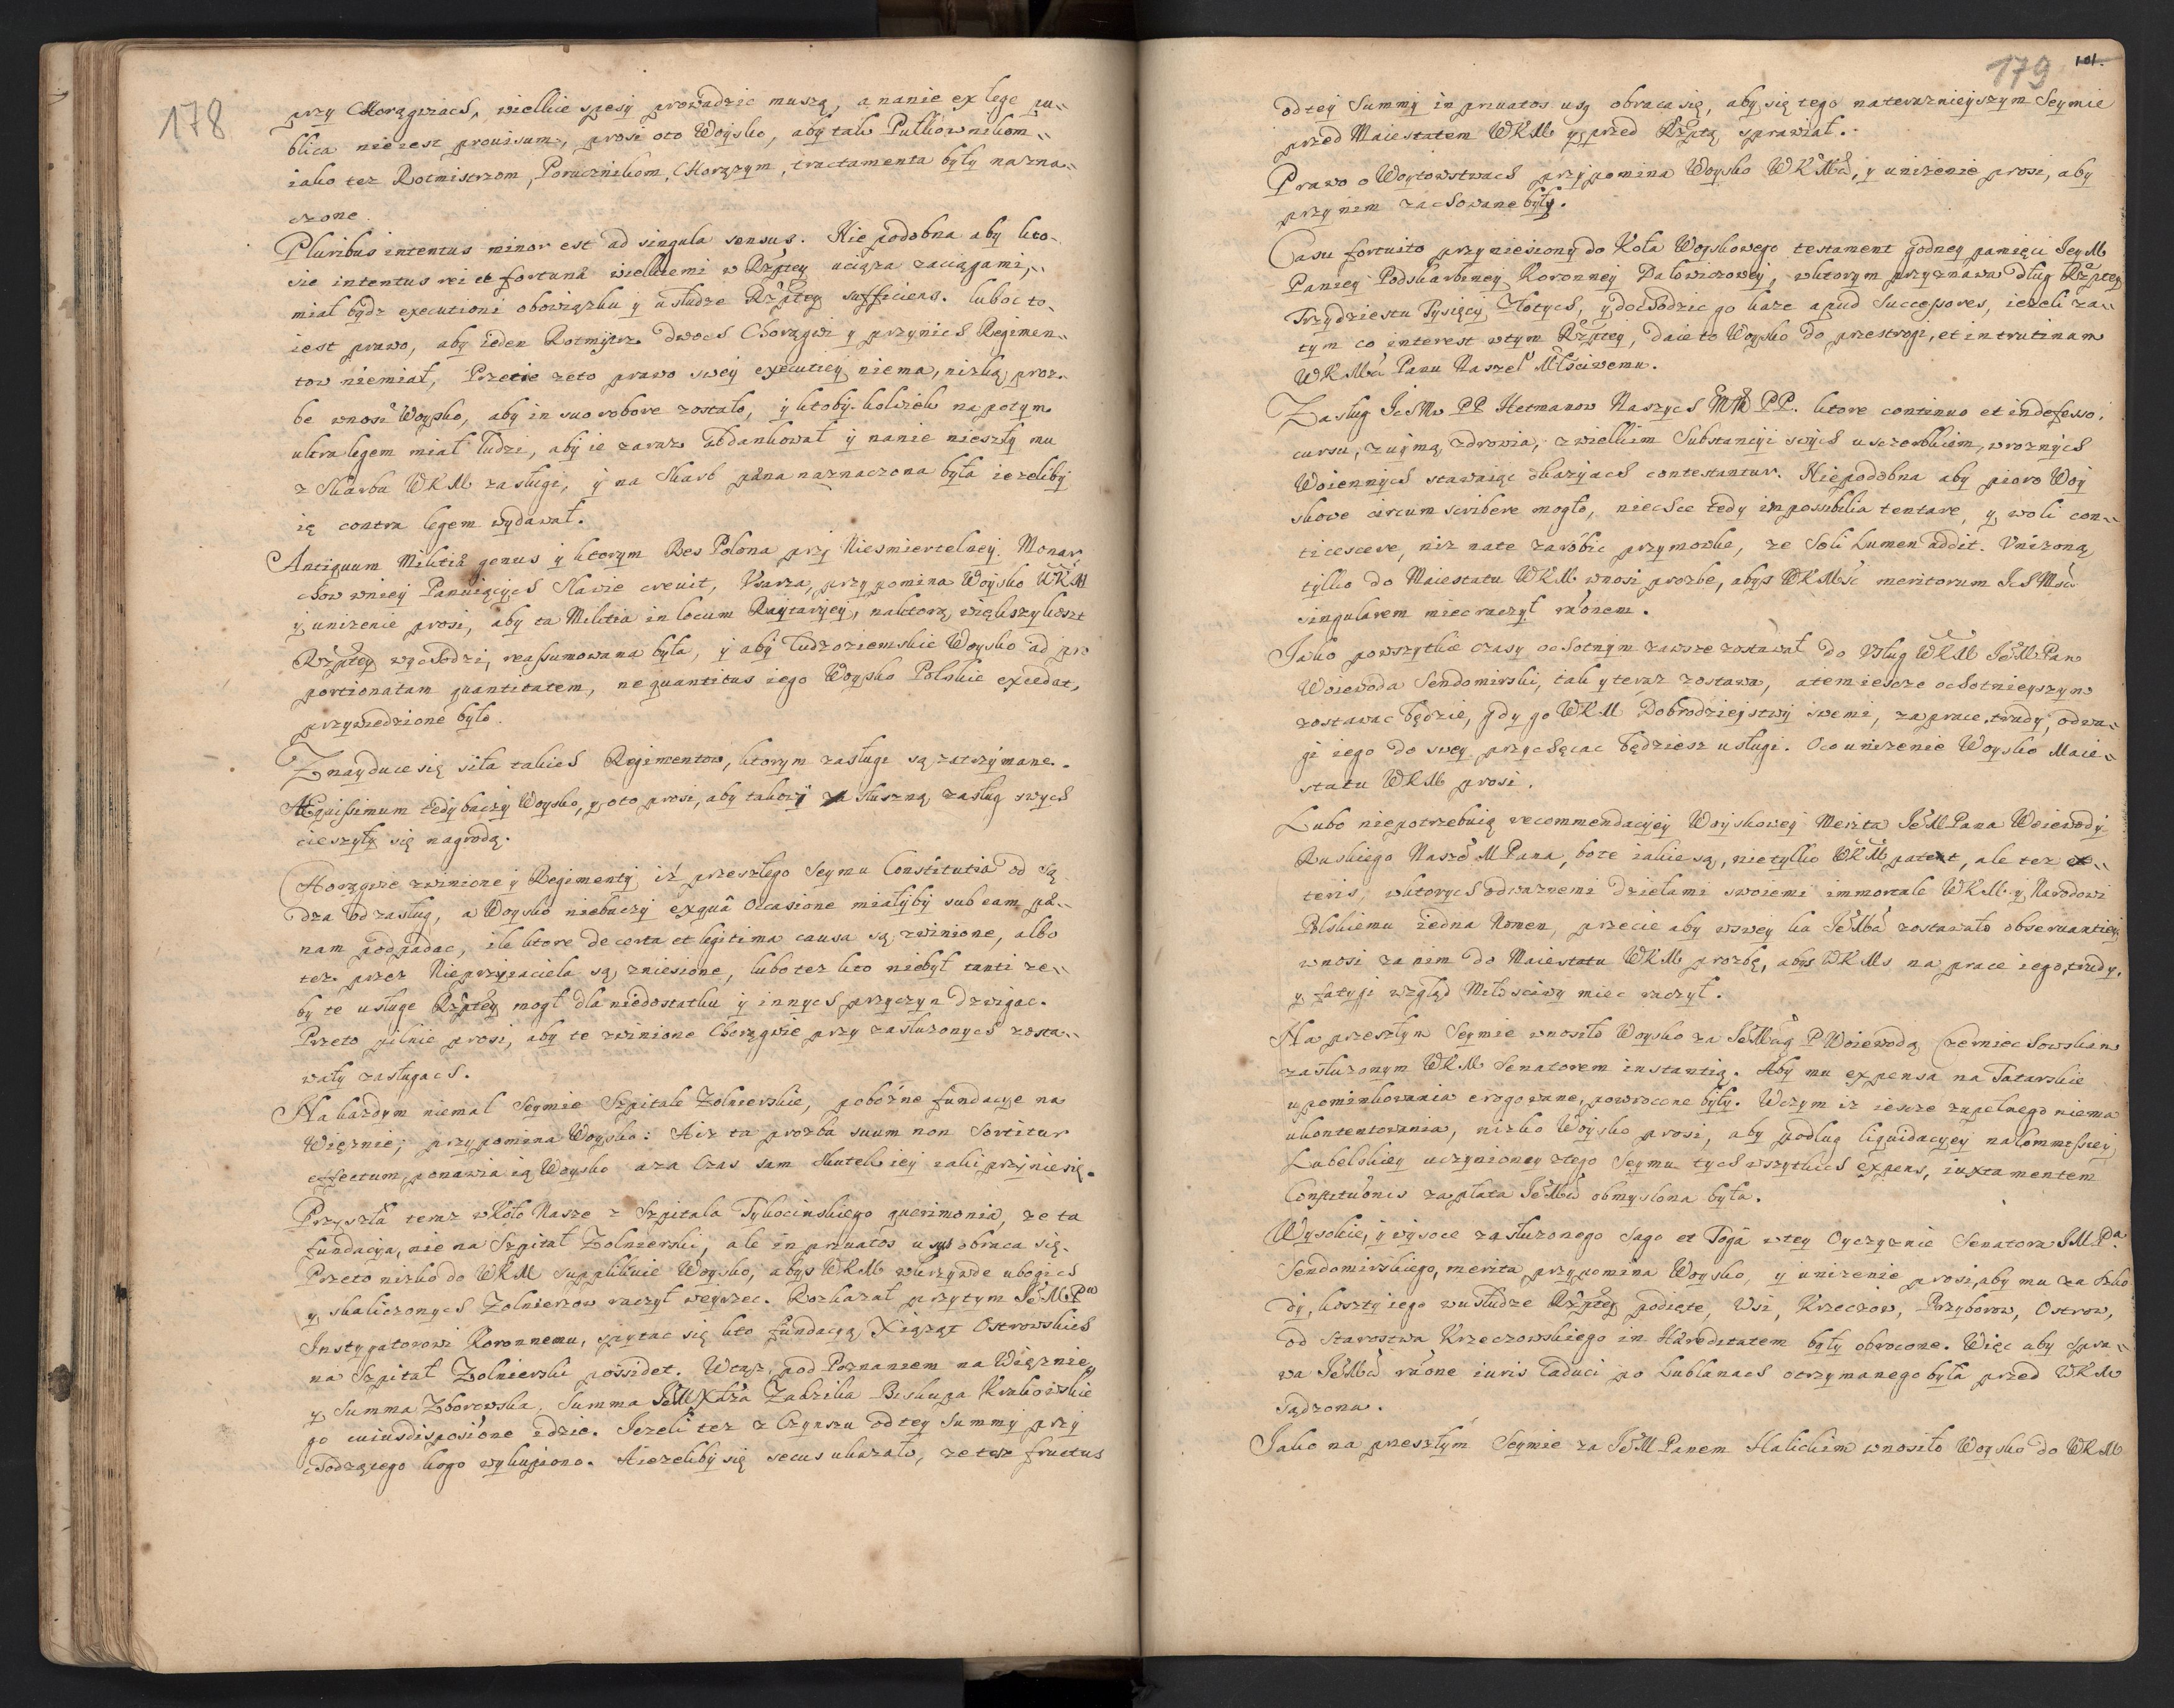 178
przy Chorągwiach, wielkie spesy prowadzic muszą, a nanie ex lege pu-
blica nieiest prouisum, prosi oto Woysko, aby tak Pułkownikom
iako tez Rotmistrzom, Porucznikom, Chorązym, tractamenta były nazna-
czone.
Pluribus intentus minor est ad singula sensus. Nie podobna aby kto-
sie intentus rei et fortunæ wielkiemi w Rzptey uciąza zaciągami,
miał bydz executioni obowiązku y usłudze Rzptey sufficiens. luboć to
iest prawo, aby ieden Rotmistrz dwoch Chorągwi y przynich Regimen-
tow niemiał, Przecie zeto prawo swey executiey niema, nizką proz-
be wnosi Woysko, aby in suo robore zostało, y ktoby kolwiek napotym
ultra legem miał ludzi, aby ie zaraz abdankował y nanie nieszły mu
z Skarbu WKM zasługi, y na Skarb pæna naznaczona była iezeliby
ię contra legem wydawał.
Antiquum Militiæ genus y ktorym Res Polona przy Niesmiertelney Monar
chow wniey Panuiących Sławie creuit, Vsarza, przypomina Woysko WKM
y unizenie prosi, aby ta Militia in locum Raytaryey, naktorą większy koszt
Rzptey wychodzi, reassumowana była, y aby Cudzoziemskie Woysko ad pro
portionatam quantitatem, ne quantitas iego Woysko Polskie excedat,
przywiedzione było.
Znayduce się siła takich Regimentow, ktorym zasługi są zatrzymane.
Æquissimum tedy baczy Woysko, y oto prosi, aby takowi słuszną zasług swych
cieszyły się nagrodą.
Chorągwie zwinione y Regimenty iż przeszłego Seymu Constitutia od są
dza od zasług, a Woysko niebaczy exquâ occasione miałyby sub eam pæ-
nam podpadac, ile ktore de certa et legitima causa są zwinione, albo
tez przez Nieprzyiaciela są zniesione, lubo tez kto niebył tanti ze-
by te usługe Rzptey mogł dla niedostatku y innych przyczyn dzwigac.
Przeto pilnie prosi, aby te zwinione Chorągwie przy zasłuzonych zosta-
wały zasługach.
Na kazdym niemal Seymie Szpitale Zolnierskie, pobożne fundacye na
Więznie; przypomina Woysko: A iz ta prozba suum non Sortitur
effectum, ponawia ią Woysko aza Czas sam skutek iey iaki przyniesię.
Przyszła teraz w Koło Nasze z Szpitala Tykocinskiego querimonia, ze ta
fundacya, nie na Szpital Zolnierski, ale in priuatos usus obraca się.
Przeto nizko do WKM supplikuie Woysko, abys WKM w krzywde ubogich
y skaliczonych Zolnierzow raczył weyrzec. Rozkazał przytym JéM Pu
Instygatorowi Koronnemu, spytac się kto fundacyą Xiąząt Ostrowskich
na Szpital Zolnierski possidet. Wtysz pod Poznaniem na Więznie
y Summa Zborowska, Summa JéM Xdza Zadzika Biskupa Krakowskie
go cuius dispositione idzie. Jezeli tez z Czynszu od tey Summy przy
chodzącego kogo wykupiono. A iezeliby się secus ukazało, ze tesz fructus
179 101.
od tey Summy in priuatos usy obraca się, aby się tego na teraznieyszym Seymie
przed Maiestatem WKM y przed Rzptą sprawiał.
Prawo o Woytowstwach przypomina Woysko WKMci, y unizenie prosi, aby
przy nim zachowane były.
Casu fortuito przyniesiony do Koła Woyskowego testament godney pamięci Jey M
Paniey Podskarbiney Koronney Dałowiczowey, wktorym przyznawa dług Rzptey
Trzydziestu Tysięcy Złotych, y dochodzic go kaze apud Successores, iezeli za-
tym co interest wtym Rzptey, daie to Woysko do przestrogi, et in trutinam
WKMci Panu Naszel Młsciwemu.
Zasług IchMc PP Hetmanow Naszych MM PP. ktore continuo et indefesso.
cursu, z uymą zdrowia, z wielkim Substancyi swych uszczerbkiem, w roznych
Woiennych stawaiąc okazyach contestantur. Niepodobna aby pioro Woy
skowe circum scribere mogło, niechce tedy impossibilia tentare, y woli con-
ticescere, niz na te zarobic przymowke, ze Soli Lumen addit. Vnizoną
tylko do Maiestatu WKM wnosi prozbe, abys WKMsć meritorum IchMsci
singularem miec raczył raõnem.
Jako powszytkie czasy ochotnym zawsze zostawał do Vsług WKM JéM Pan
Woiewoda Sendomirski, tak y teraz zostawa, a tem iescze ochotnieyszym
zostawac będzie, gdy go WKM Dobrodzieystwy swemi, za prace, trudy, odwa-
gi iego do swey przychęcac będziesz usługi. Oco unizenie Woysko Maie-
statu WKM prosi.
Lubo niepotrzebuią recommendacyey Woyskowey Merita JéM Pana Woiewody
Ruskiego Naszo M Pana, boze iakie są, nietylko WKM patent, ale tez ex-
teris, wktorych odwaznemi dziełami swoiemi immortale WKM y Narodowi
Polskiemu iedna Nomen, przecie aby wswey ku JéMści zostawało obseruantiey
wnosi za nim do Maiestatu WKM prozbę, abys WKMs na prace iego, trudy,
y fatygi wzgląd Miłosciwy miec raczył.
Na przeszłym Seymie wnosiło Woysko za JéMcią P Woiewodą Czerniechowskim
zasłuzonym WKM Senatorem instantią. Aby mu expensa na Tatarskie
upominkowania erogowane, powrocone były. Wczym iz iescze zupełnego niema
ukontentowania, nizko Woysko prosi, aby podług liquidacyey na Commissiey
Lubelskiey uczynioney ztego Seymu tych wszytkich expens, iuxta mentem
Constituõnis zapłata JéMci obmyslona była.
Wysokie, y wysoce zasłuzonego Sago et Togâ wtey Oyczyznie Senatora JM Pa
Sendomirskiego, merita przypomina Woysko, y unizenie prosi, aby mu za szko
dy, koszty iego w usłudze Rzptey podięte, Wsi, Krzeczow, Przyborow, Ostrow,
od Starostwa Krzeczowskiego in Hæreditatem były obrocone. Więc aby spra-
wa JéMci raõne iuris Caduci po Lublanach otrzymanego była przed WKM
sądzona.
Jako na przeszłym Seymie za JéM Panem Halickim wnosiło Woysko do WKM